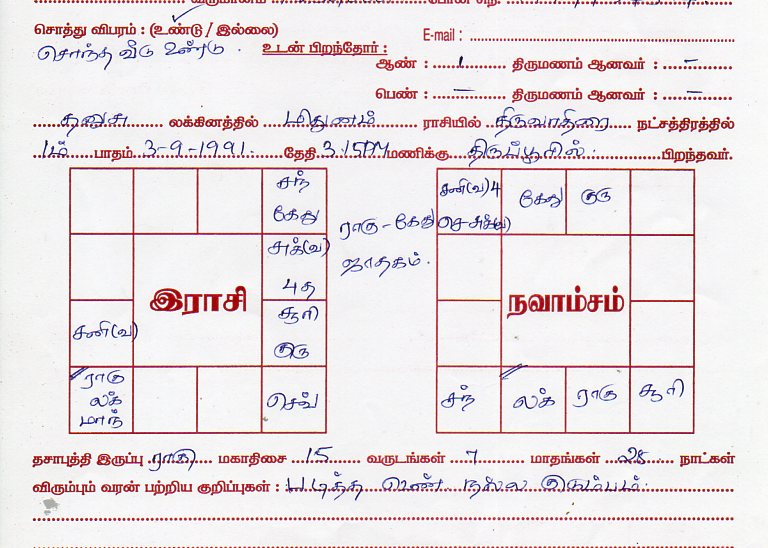 சொத்து விபரம் : (உண்டு / இல்லை)
E-mail :
சொந்த வீடு உண்டு . உடன் பிறந்தோர் :
ஆண் : 1 திருமணம் ஆனவர் : –
பெண் : – திருமணம் ஆனவர் : –
தனுசு லக்கினத்தில் மிதுனம் ராசியில் திருவாதிரை நட்சத்திரத்தில்
1ம் பாதம் 3-9-1991. தேதி 3.15PM மணிக்கு திருப்பூரில். பிறந்தவர்.
சந்
கேது
சனி(வ) 4
செ-சுக்(வ)
கேது
குரு
ராகு – கேது
ஜாதகம்.
சுக்(வ)
4த
இராசி
நவாம்சம்
சனி(வ)
சூரி
குரு
ராகு
லக்
மாந்
செவ்
சந்
லக்
ராகு
சூரி
தசாபுத்தி இருப்பு ராகு மகாதிசை 15 வருடங்கள் 7 மாதங்கள் 28 நாட்கள்
விரும்பும் வரன் பற்றிய குறிப்புகள் : படித்த பெண் நல்ல குடும்பம்.